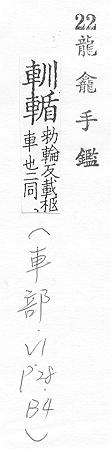 22龍龕手鑑
𨋢輴勑輪反載柩
車也二同
(車部.V1
P.28.
B4)